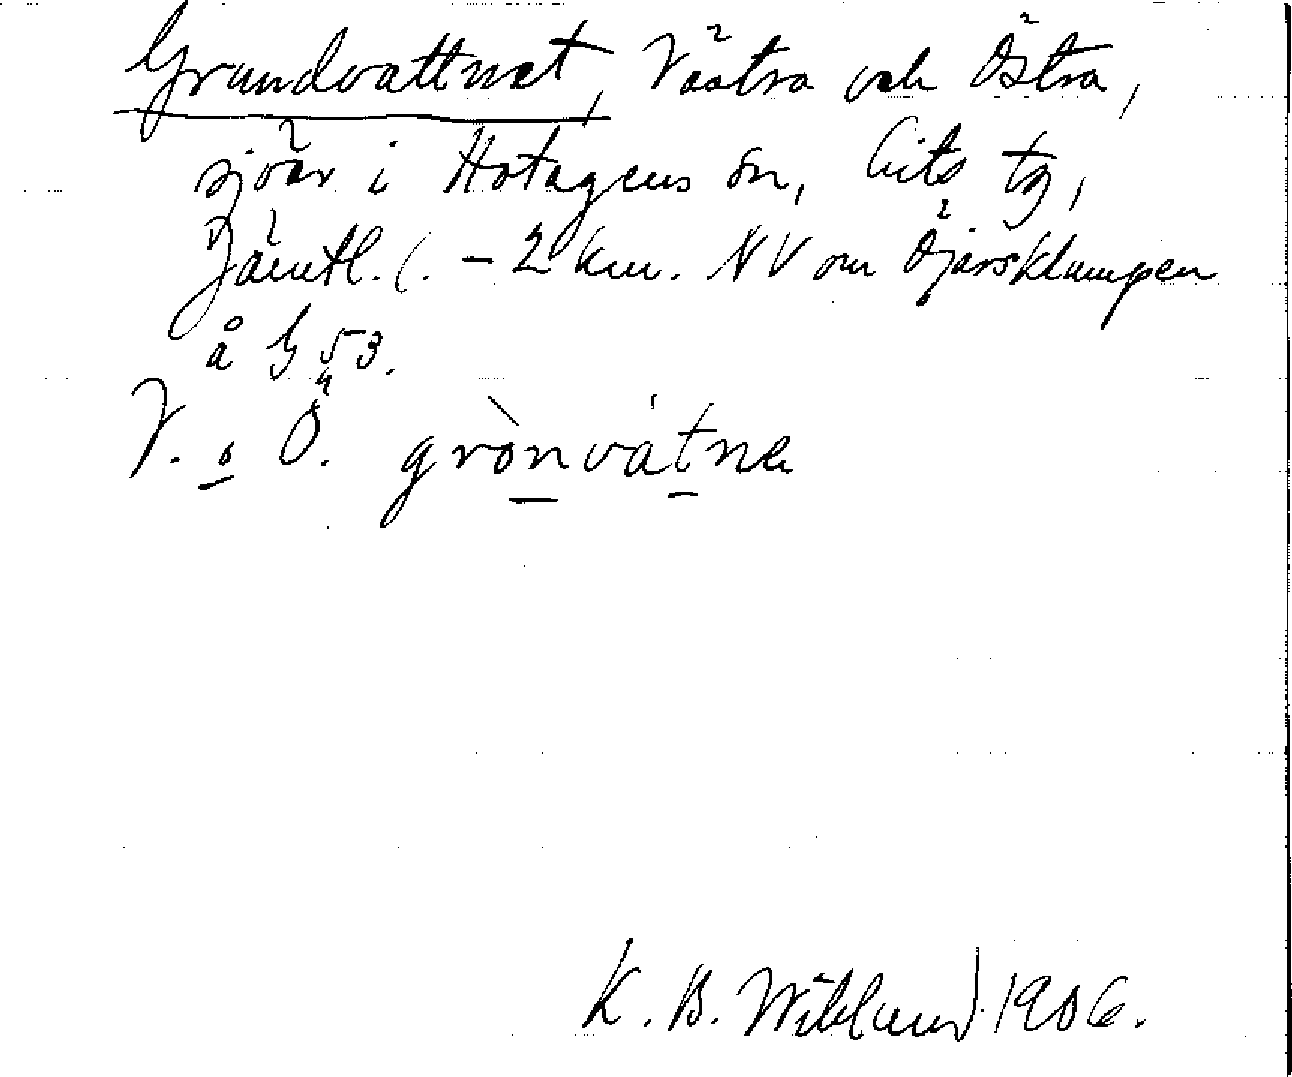 Grundvattnet, Västra och Östra,
sjöar i Hotagens sn, Lits tg,
Jämtl. l. – 2 km. NV om Öjarsklumpen
å G 53.
V. o Ö. grònvátna
K. B. Wiklund 1906.